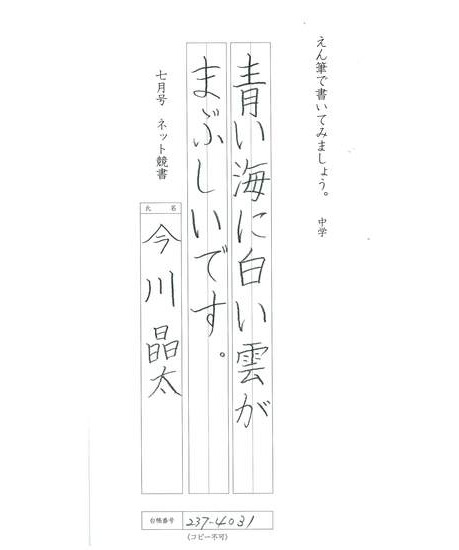 えん筆で書いてみましょう。 中学
青い海に白い雲が
まぶしいです。
七月号 ネット競書
氏 名
今川晶太
台帳番号 237-4031
(コピー不可)